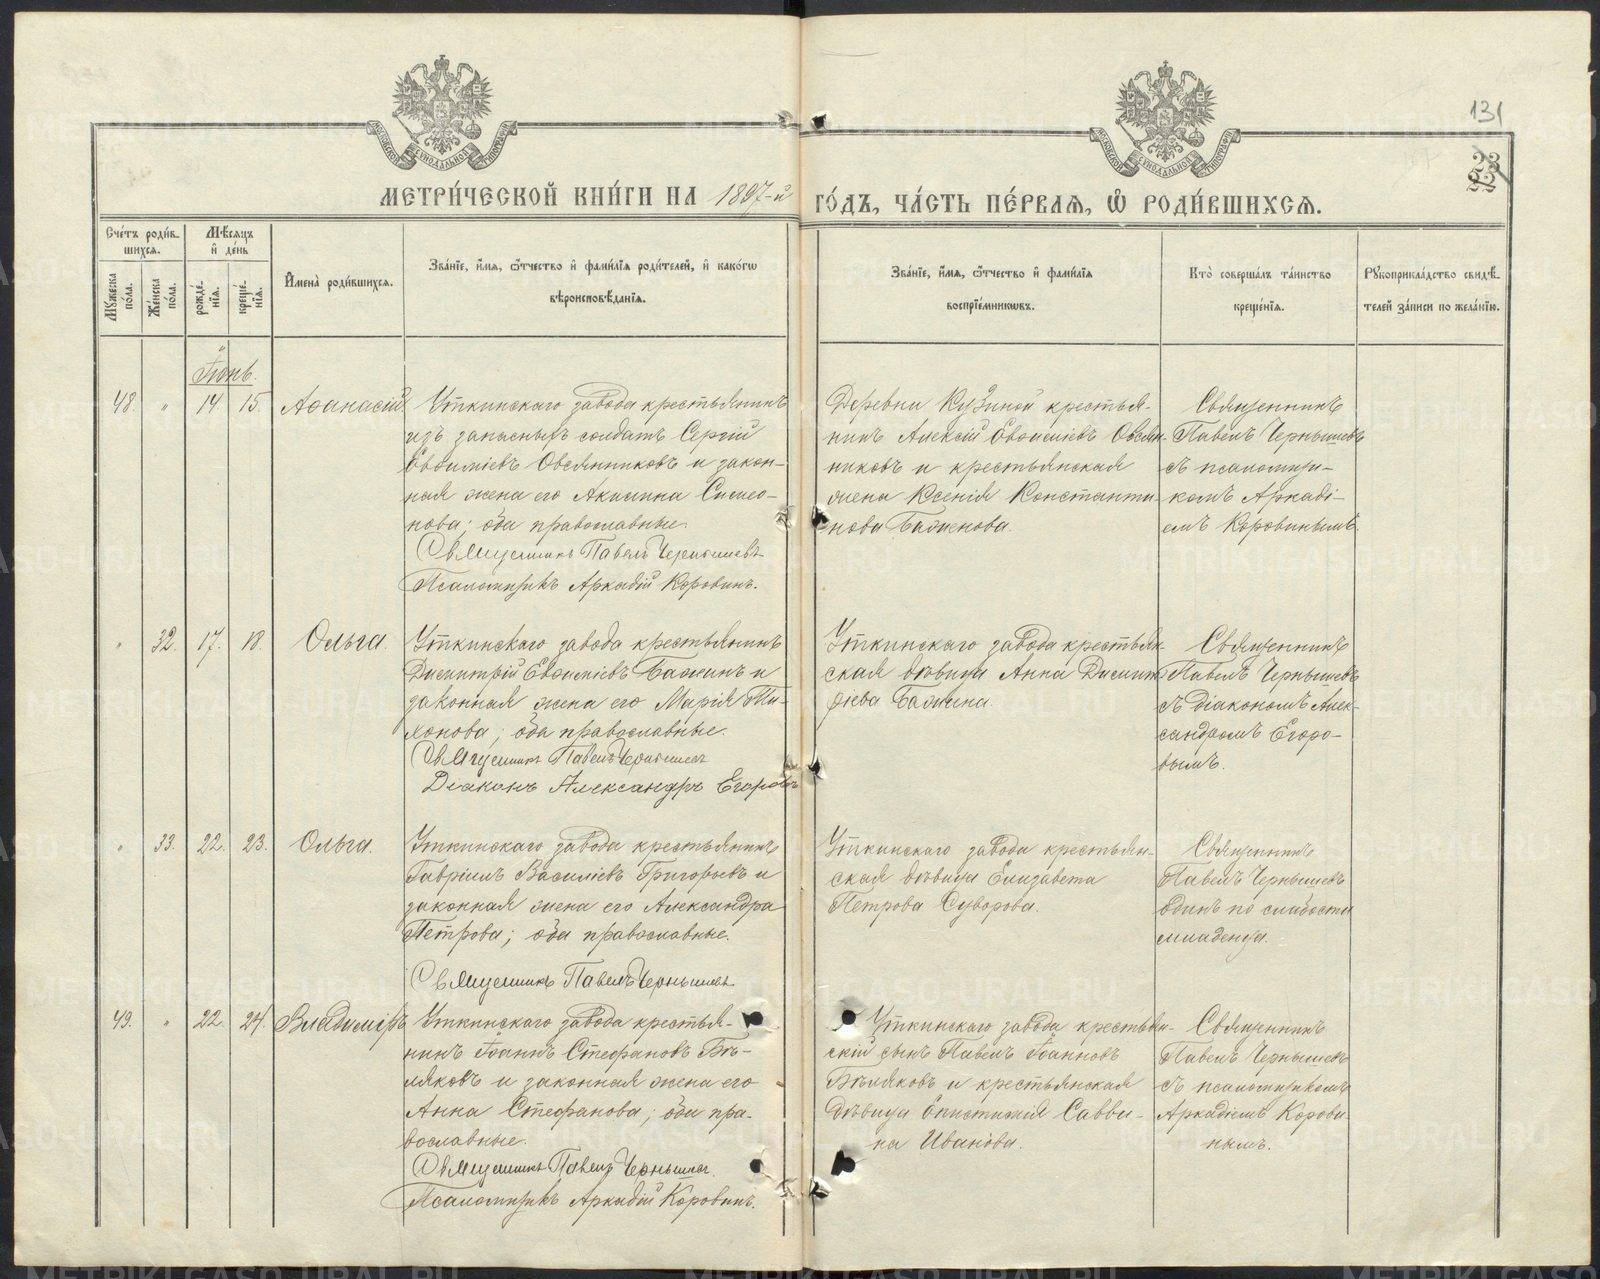 131
23
22
МОСКОВСКОЙ СѴНОДАЛЬНОЙ ТИПОГРАФІИ
МОСКОВСКОЙ СѴНОДАЛЬНОЙ ТИПОГРАФІИ
МЕТРИ́ЧЕСКОЙ КНИ́ГИ НА 1897-й ГО́ДЪ, ЧА́СТЬ ПЕ́РВАЯ, Ѽ РОДИ́ВШИХСЯ.
Сче́тъ роди́в-
шихся.
Мꙋжеска
по́ла.
Же́нска
по́ла.
Мѣ́сяцъ
и҆ де́нь
рожде́-
нїѧ.
креще́-
нїѧ.
И҆мена̀ роди́вшихся.
Зва́нїе, и҆́мя, ѻ҆́тчество и҆ фами́лїя роди́телей, и҆ како́гѡ
вѣроисповѣ́данїѧ.
Зва́нїе, и҆́мя, ѻ҆́тчество и҆ фами́лїя
воспрїе́мникѡвъ.
Кто̀ соверша́лъ та́инство
креще́нїѧ.
Рꙋкоприкла́дство свидѣ́-
телей за́писи по жела́нїю.
Іюнь.
48. " 14 15. Аѳанасій
Уткинскаго завода крестьянинъ
изъ запасныхъ солдатъ Сергій
Евѳиміевъ Овсянниковъ и закон-
ная жена его Акилина Симео-
нова; оба православные.
Священникъ Павелъ Чернышевъ
Псаломщикъ Аркадій Коровинъ.
Деревни Кузиной крестья-
нинъ Алексій Евѳиміевъ Овсян-
никовъ и крестьянская
жена Ксенія Константи-
нова Баженова.
Священникъ
Павелъ Чернышевъ
съ псаломщи-
комъ Аркаді-
емъ Коровинымъ.
" 32. 17. 18. Ольга.
Уткинскаго завода крестьянинъ
Димитрій Евѳиміевъ Бажинъ и
законная жена его Марія Ти-
хонова; оба православные.
Священникъ Павелъ Чернышевъ
Діаконъ Александръ Егоровъ
Уткинскаго завода крестьян-
ская дѣвица Анна Димит-
ріева Бажина.
Священникъ
Павелъ Чернышевъ
съ діакономъ Алек-
сандромъ Егоро-
вымъ.
" 33. 22. 23. Ольга.
Уткинскаго завода крестьянинъ
Гавріилъ Василіевъ Григорьевъ и
законная жена его Александра
Петрова; оба православные.
Священникъ Павелъ Чернышевъ
Уткинскаго завода крестьян-
ская дѣвица Елизавета
Петрова Суворова.
Священникъ
Павелъ Чернышевъ
одинъ по слабости
младенца.
49. " 22. 24. Владиміръ
Уткинскаго завода крестья-
нинъ Іоаннъ Стефановъ Бѣ-
ляковъ и законная жена его
Анна Стефанова; оба пра-
вославные.
Священникъ Павелъ Чернышевъ.
Псаломщикъ Аркадій Коровинъ.
Уткинскаго завода крестьян-
скій сынъ Павелъ Іоанновъ
Бѣляковъ и крестьянская
дѣвица Епистимія Савви-
на Иванова.
Священникъ
Павелъ Чернышевъ
съ псаломщикомъ
Аркадіемъ Корови-
нымъ.